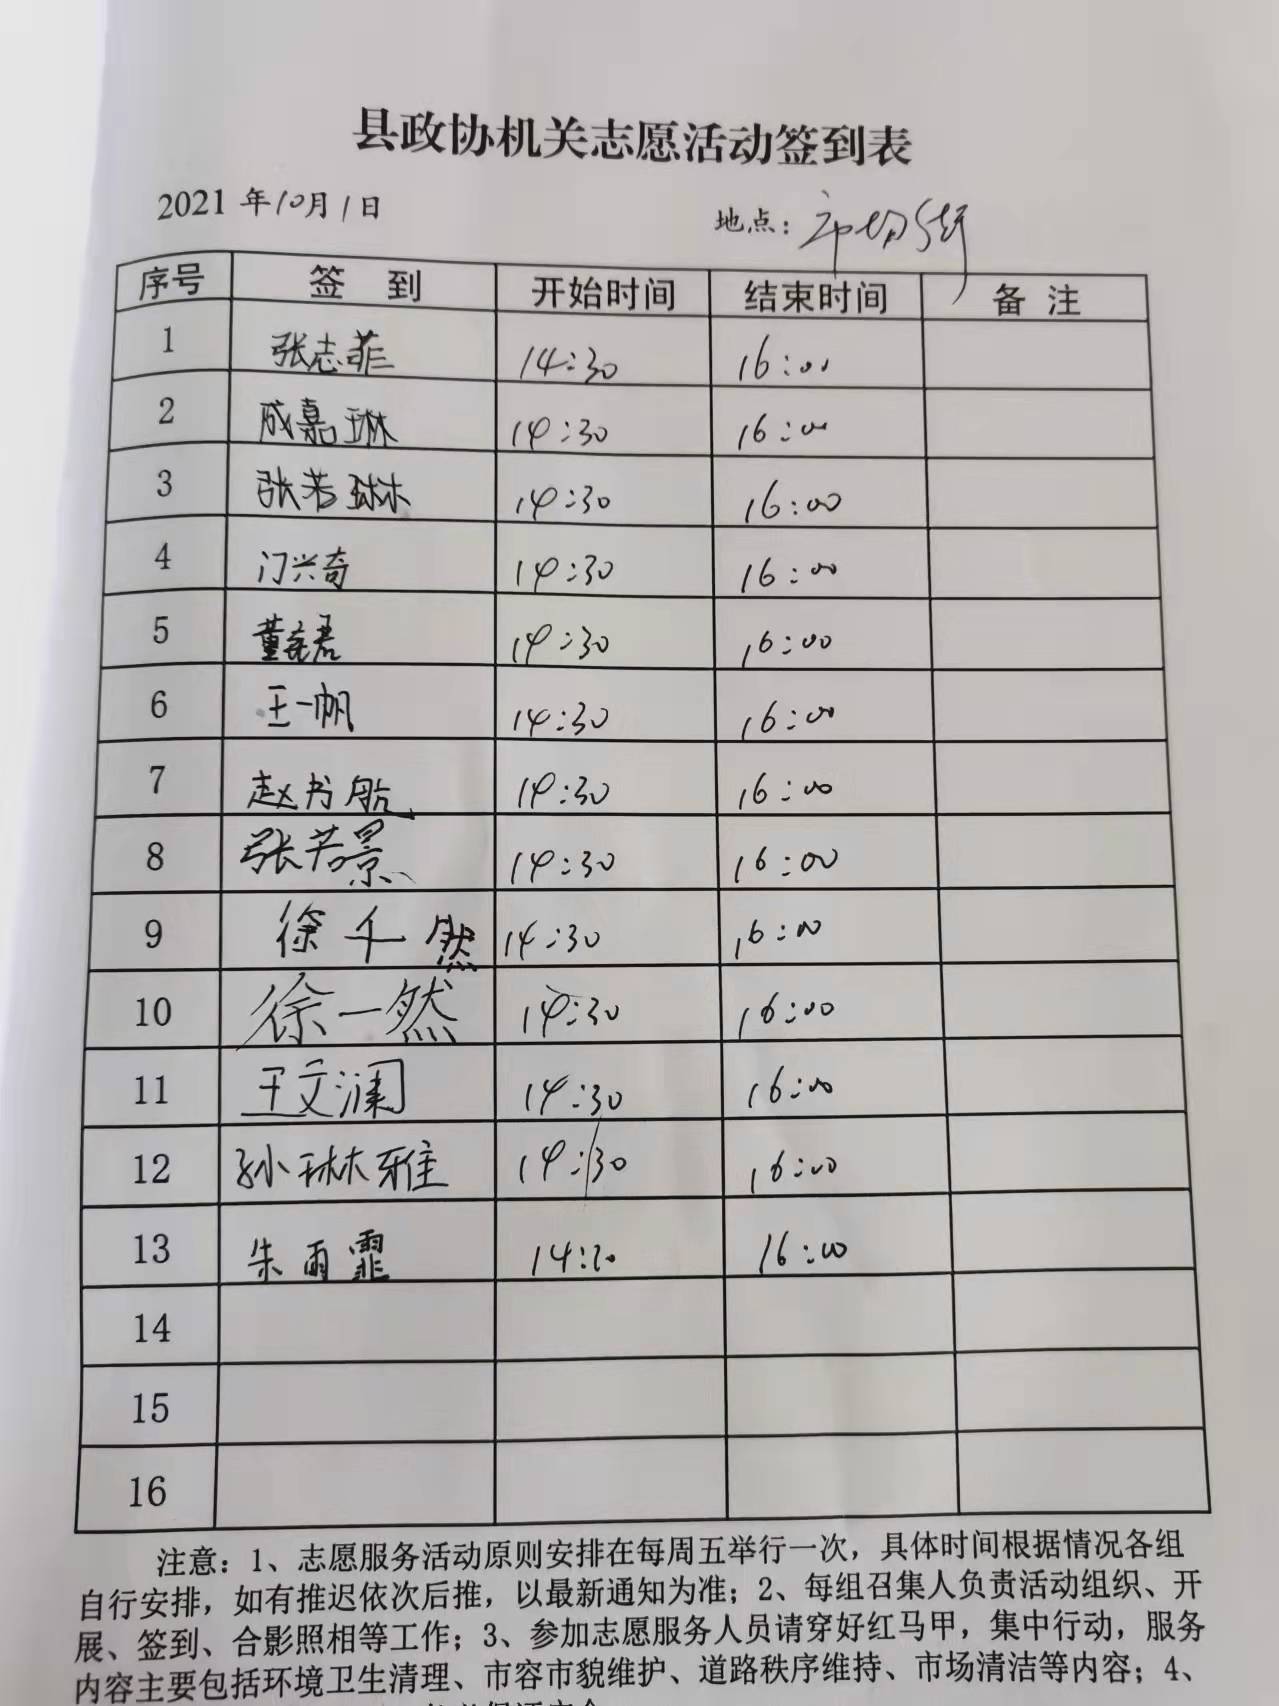 县政协机关志愿活动签到表
2021年10月1日 地点：
序号 签 到 开始时间 结束时间 备 注
1 张志菲 14:30 16:00
2 成嘉琳 14:30 16:00
3 张若琳 14:30 16:00
4 门兴奇 14:30 16:00
5 董 君 14:30 16:00
6 王一帆 14:30 16:00
7 赵书航 14:30 16:00
8 张若景 14:30 16:00
9 徐千然 14:30 16:00
10 徐一然 14:30 16:00
11 王文澜 14:30 16:00
12 孙琳雅 14:30 16:00
13 朱雨霏 16:00
14
15
16
注意：1、志愿服务活动原则安排在每周五举行一次，具体时间根据情况各组
自行安排，如有推迟依次后推，以最新通知为准；2、每组召集人负责活动组织、开
展、签到、合影照相等工作；3、参加志愿服务人员请穿好红马甲，集中行动，服务
内容主要包括环境卫生清理、市容市貌维护、道路秩序维持、市场清洁等内容；4、